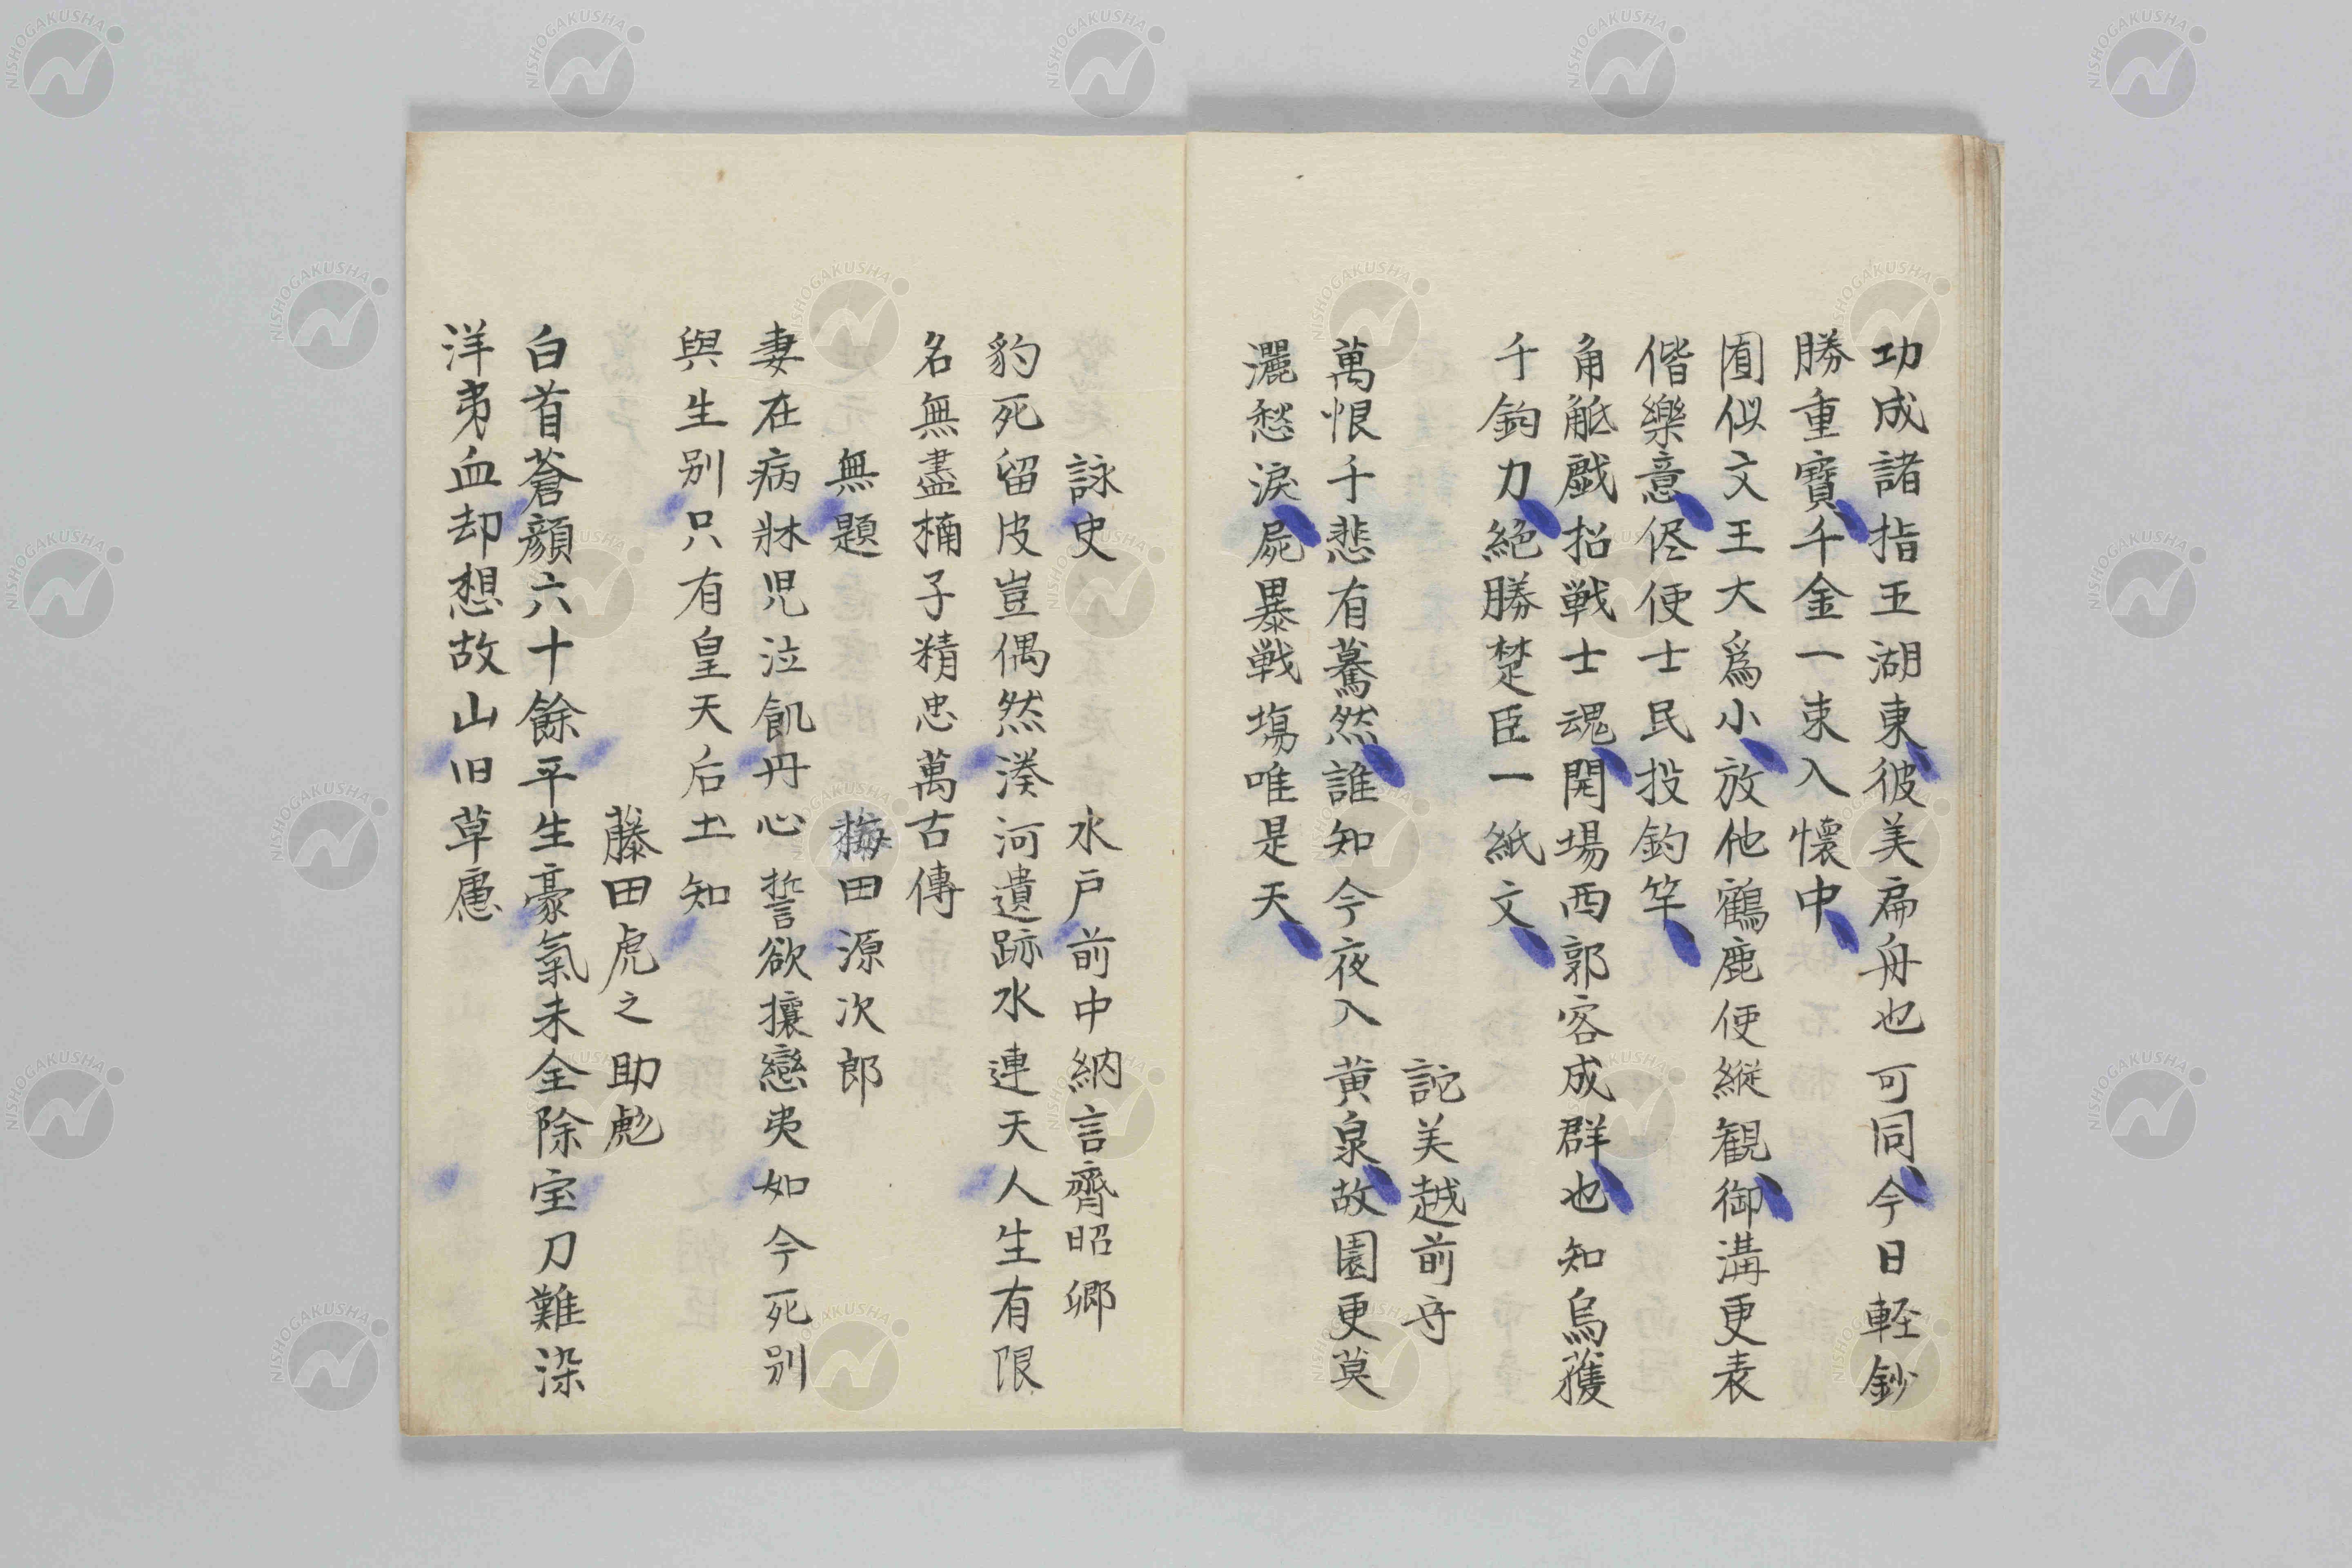 功成諸指五湖東彼美扁舟也可同今日軽鈔
勝重寳千金一束入懐中
囿似文王大爲小放他鶴鹿便縦観御溝更表
偕樂意侭使士民投釣竿
角觝戯招戦士魂開場西郭客成群也知烏獲
千鈞力絶勝楚臣一紙文
詑美越前守
萬恨千悲有驀然誰知今夜入黄泉故園更莫
灑愁涙屍暴戦塲唯是天
詠史 水戸前中納言齊昭郷
豹死留皮豈偶然湊河遺跡水連天人生有限
名無盡楠子精忠萬古傳
無題 梅田源次郎
妻在病牀児泣飢丹心誓欲攘戀夷如今死別
與生別只有皇天后土知
藤田虎之助彪
白首蒼顔六十餘平生豪氣未全除宝刀難染
洋夷血却想故山旧草廬